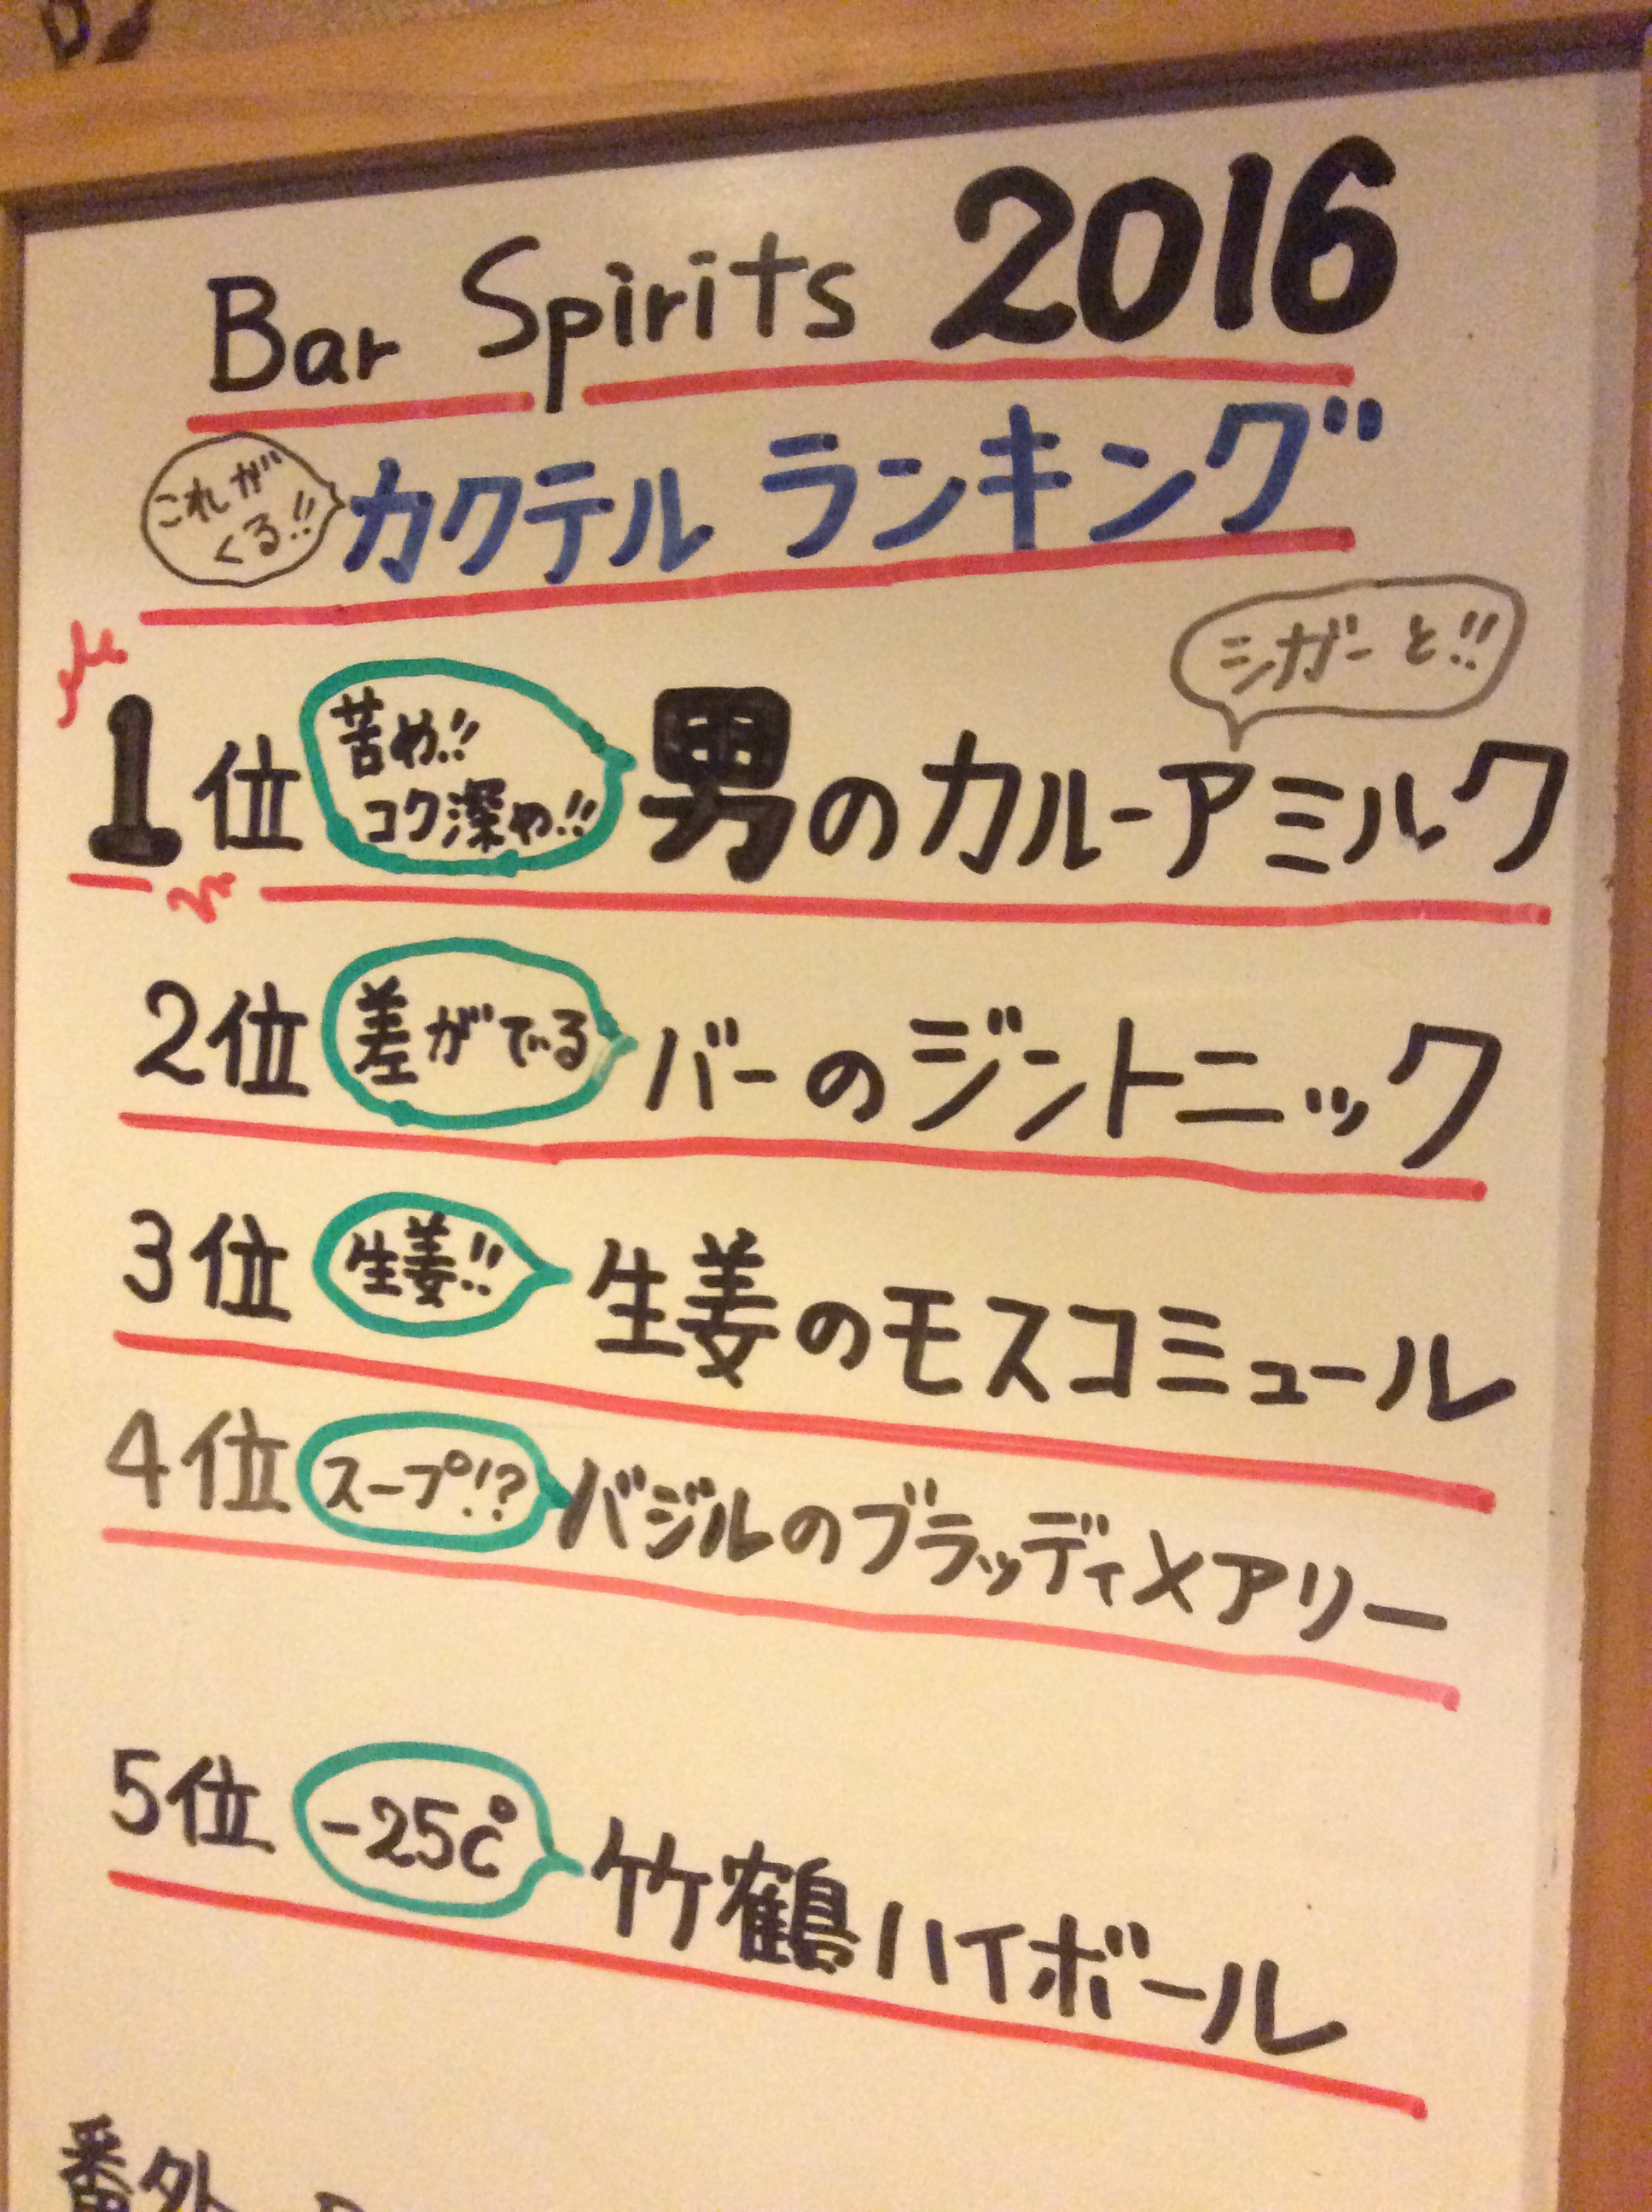 Bar Spirits 2016
これが
くる!!
カクテル ランキング
シガーと!!
1位
苦め!!
コク深め!!
男のカルーアミルク
2位
差がでる
バーのジントニック
3位
生姜!!
生姜のモスコミュール
4位
スープ!?
バジルのブラッディメアリー
5位
-25c°
竹鶴ハイボール
番外